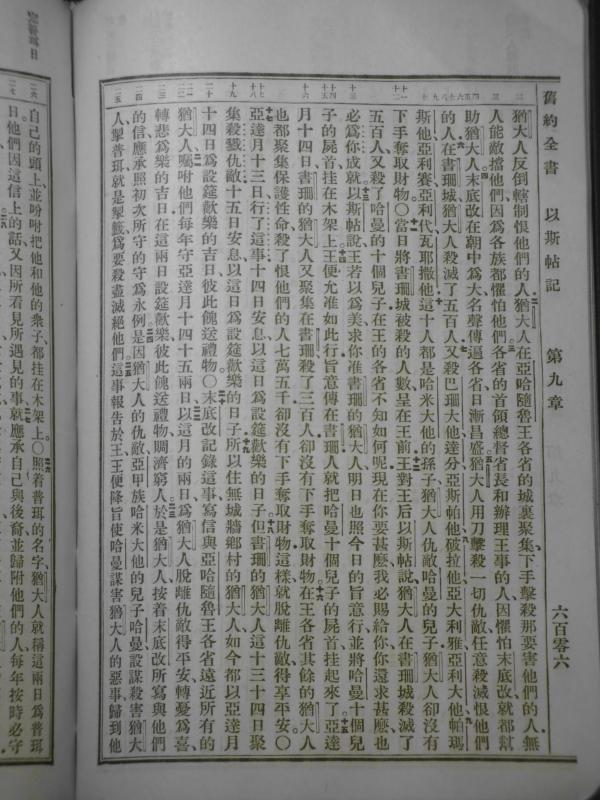 舊約全書　以斯帖記　第九章　六百零六
二　三　四　五　六　七　八　九　十　十一　十二　十三　十四　十五　十六　十七　十八　十九　二十　二一　二二　二三　二四　二五
猶大人反倒轄制恨他們的人猶大人在亞哈隨魯王各省的城裏聚集下手擊殺那要害他們的人無
人能敵擋他們因爲各族都懼怕他們各省的首領總督省長和辦理王事的人因懼怕末底改就都幫
助猶大人末底改在朝中爲大名聲傳遍各省日漸昌盛猶大人用刀擊殺一切仇敵任意殺滅恨他們
的人在書珊城猶大人殺滅了五百人又殺巴珊大他達分亞斯帕他破拉他亞大利雅亞利大他帕瑪
斯他亞利賽亞利代瓦耶撒他這十人都是哈米大他的孫子猶大人仇敵哈曼的兒子猶大人卻沒有
下手奪取財物〇當日將書珊城被殺的人數呈在王前王對王后以斯帖說猶大人在書珊城殺滅了
五百人又殺了哈曼的十個兒子在王的各省不知如何呢現在你要甚麼我必賜給你你還求甚麼也
必爲你成就以斯帖說王若以爲美求你准書珊的猶大人明日也照今日的旨意行並將哈曼十個兒
子的屍首挂在木架上王便允准如此行旨意傳在書珊人就把哈曼十個兒子的屍首挂起來了亞達
月十四日書珊的猶大人又聚集在書珊殺了三百人卻沒有下手奪取財物在王各省其餘的猶大人
也都聚集保護性命殺了恨他們的人七萬五千卻沒有下手奪取財物這樣就脫離仇敵得享平安〇
亞達月十三日行了這事十四日安息以這日爲設筵歡樂的日子但書珊的猶大人這十三十四日聚
集殺戮仇敵十五日安息以這日爲設筵歡樂的日子所以住無城牆鄉村的猶大人如今都以亞達月
十四日爲設筵歡樂的吉日彼此餽送禮物〇末底改記錄這事寫信與亞哈隨魯王各省遠近所有的
猶大人囑咐他們每年守亞達月十四十五兩日以這月的兩日爲猶大人脫離仇敵得平安轉憂爲喜
轉悲爲樂的吉日在這兩日設筵歡樂彼此餽送禮物賙濟窮人於是猶大人按着末底改所寫與他們
的信應承照初次所守的守爲永例是因猶大人的仇敵亞甲族哈米大他的兒子哈曼設謀殺害猶大
人掣普珥就是掣籤爲要殺盡滅絕他們這事報告於王王便降旨使哈曼謀害猶大人的惡事歸到他
自己的頭上並吩咐把他和他的衆子都挂在木架上〇照着普珥的名字猶大人就稱這兩日爲普珥
日他們因這信上的話又因所看見所遇見的事就應承自己與後裔並歸附他們的人每年按時必守